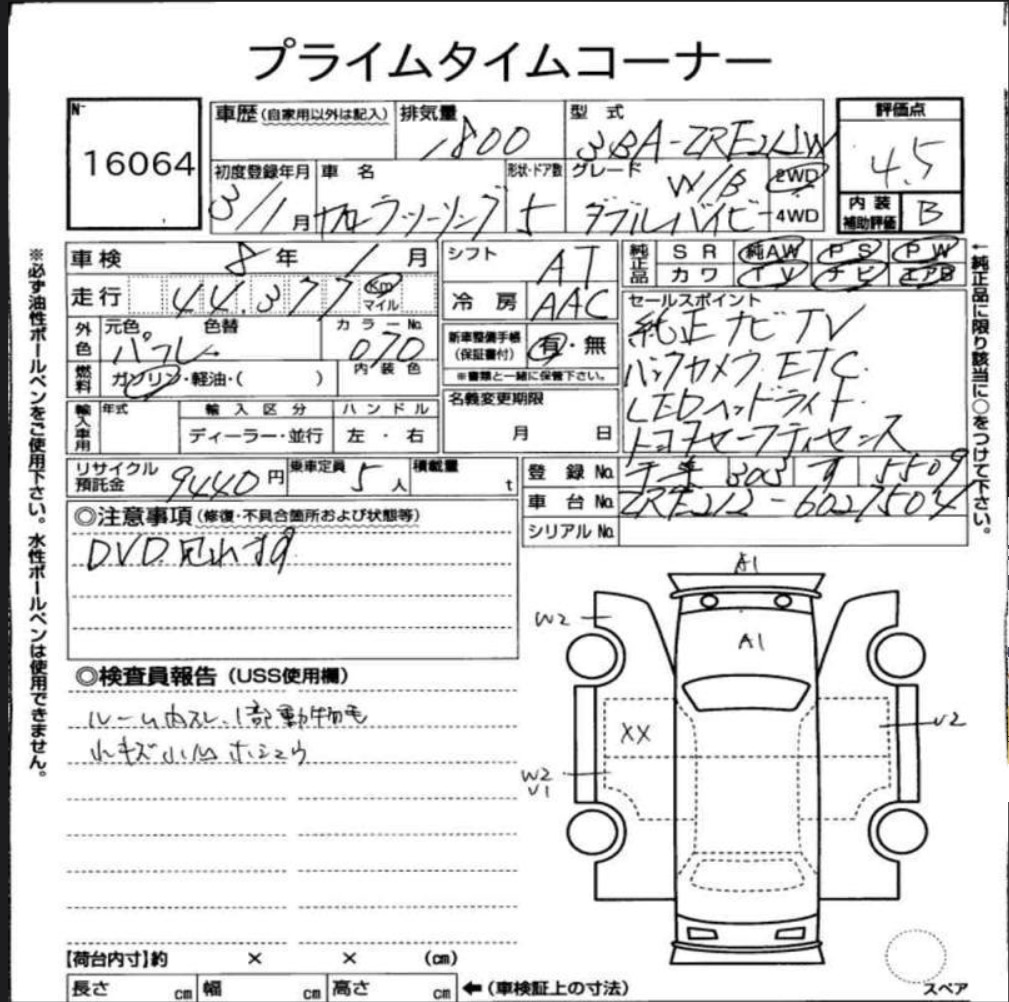 プライムタイムコーナー
No
16064
車歴 (自家用以外は記入)
排気量
1800
型式
3BA-ZRE212W
評価点
4.5
初度登録年月
3/1月
車名
カローラツーリング
形状・ドア数
5
グレード
W/B
ダブルバイビー
2WD
4WD
内装補助評価
B
車検 8年 1月
走行 44,377 Km マイル
シフト
AT
冷房
AAC
純正品
SR 純AW PS PW
カワ TV ナビ エアB
外色
元色
パール
色替
カラーNo.
070
内装色
燃料
ガソリン・軽油・( )
新車整備手帳(保証書付)
有・無
※書類と一緒に保管下さい。
セールスポイント
純正ナビTV
バックカメラ ETC.
LEDヘッドライト.
トヨタセーフティセンス
輸入車用
年式
輸入区分
ディーラー・並行
ハンドル
左・右
名義変更期限
月 日
リサイクル預託金
9440円
乗車定員
5人
積載量
t
登録No.
303
5509
車台No.
ZRE212-6027504
シリアルNo.
◎注意事項 (修復・不具合箇所および状態等)
DVD見れます
◎検査員報告 (USS使用欄)
ルーム内スレ、1部動物毛
小キズ小凹 ホシュウ
A1
A1
W2
XX
W2
U1
U2
【荷台内寸】約 × × (cm)
長さ cm 幅 cm 高さ cm ←(車検証上の寸法)
スペア
※必ず油性ボールペンをご使用下さい。水性ボールペンは使用できません。
←純正品に限り該当に○をつけて下さい。